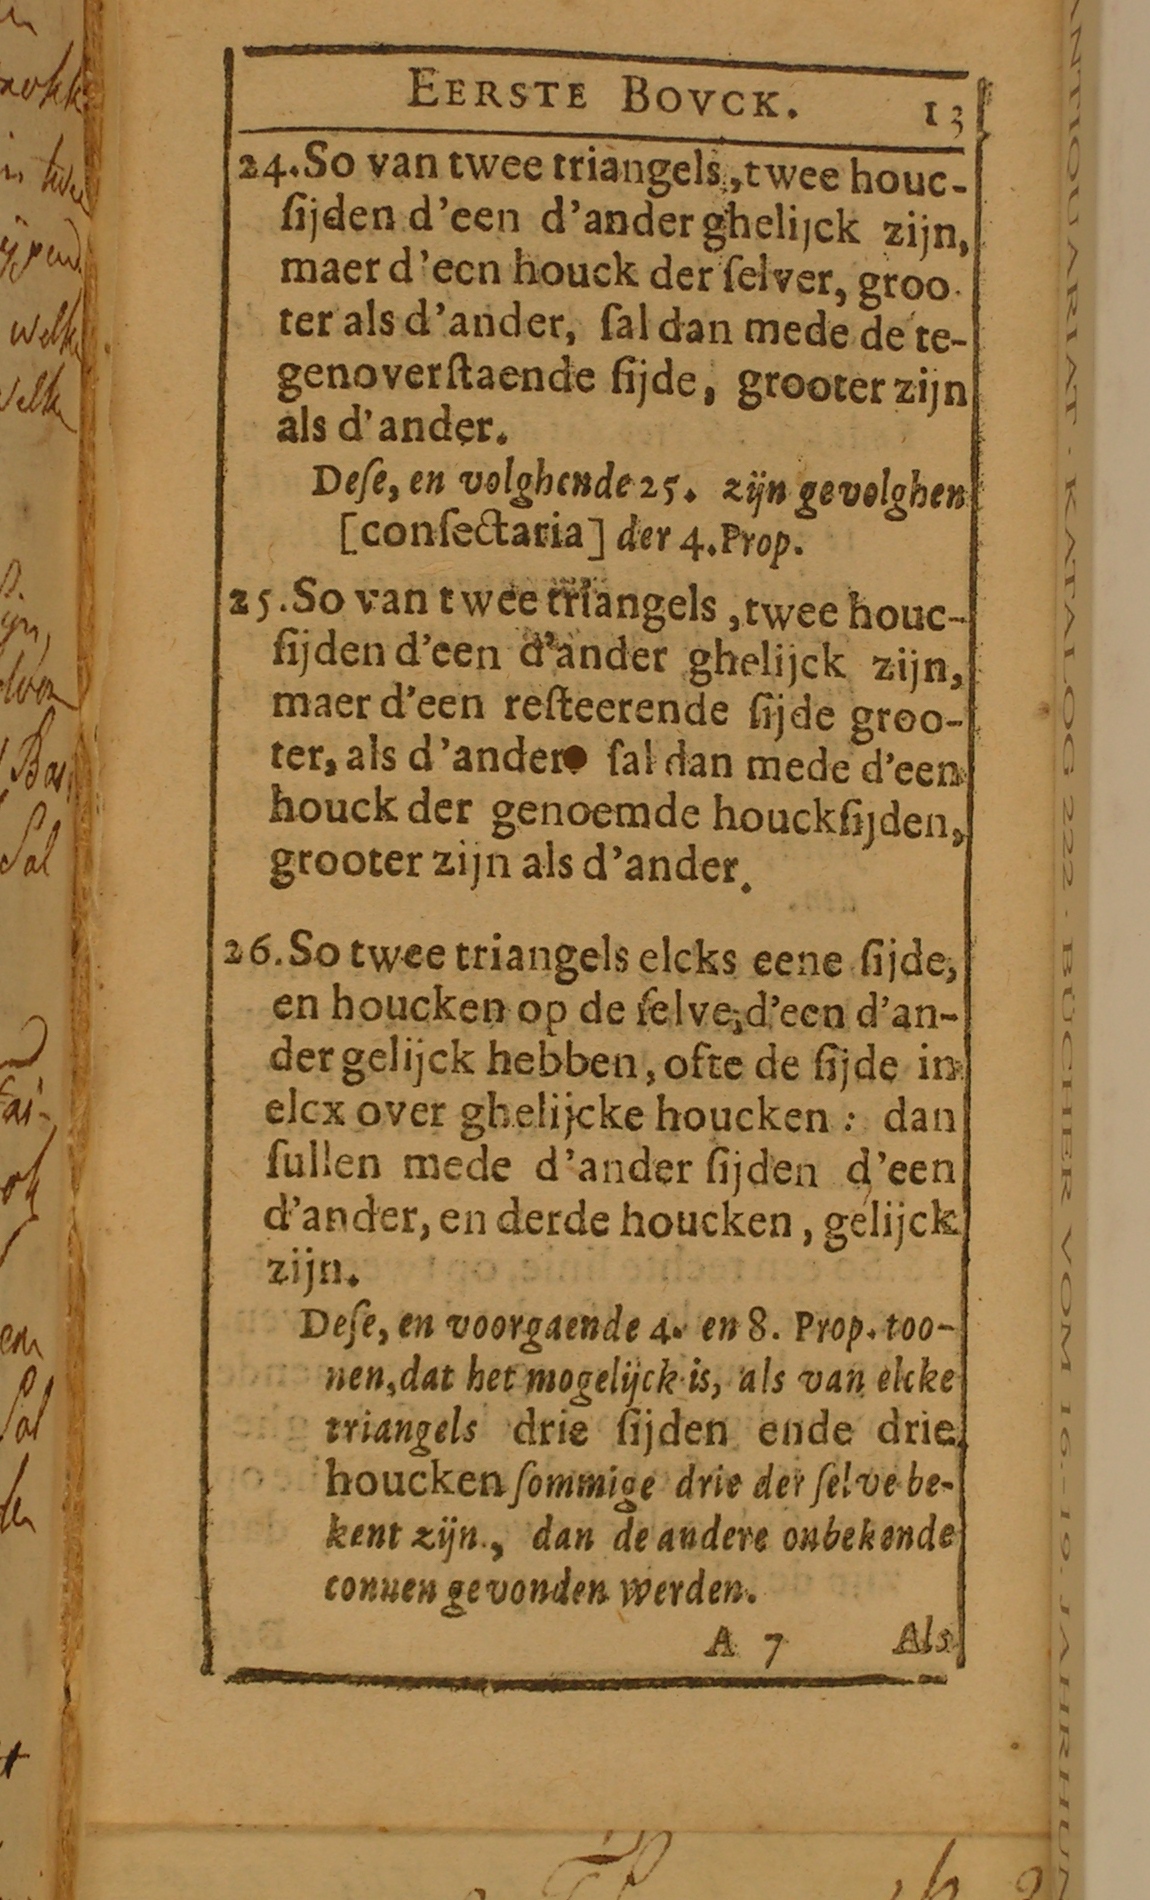 EERSTE BOVCK. 13
24. So van twee triangels, twee houc-
ſijden d'een d'ander ghelijck zijn,
maer d'een houck der ſelver, groo-
ter als d'ander, ſal dan mede de te-
genoverſtaende ſijde, grooter zijn
als d'ander.
Deſe, en volghende 25. zijn gevolghen
[conſectaria] der 4. Prop.
25. So van twee triangels, twee houc-
ſijden d'een d'ander ghelijck zijn,
maer d'een reſteerende ſijde groo-
ter, als d'ander ſal dan mede d'een
houck der genoemde houckſijden,
grooter zijn als d'ander.
26. So twee triangels elcks eene ſijde,
en houcken op de ſelve, d'een d'an-
der gelijck hebben, ofte de ſijde in
elcx over ghelijcke houcken : dan
ſullen mede d'ander ſijden d'een
d'ander, en derde houcken, gelijck
zijn.
Deſe, en voorgaende 4. en 8. Prop. too-
nen, dat het mogelijck is, als van elcke
triangels drie ſijden ende drie
houcken ſommige drie der ſelve be-
kent zijn, dan de andere onbekende
connen gevonden werden.
A 7 Als
ANTIQUARIAT · KATALOG 222 · BÜCHER VOM 16.-19. JAHRHUN
welke
Sal
Sal